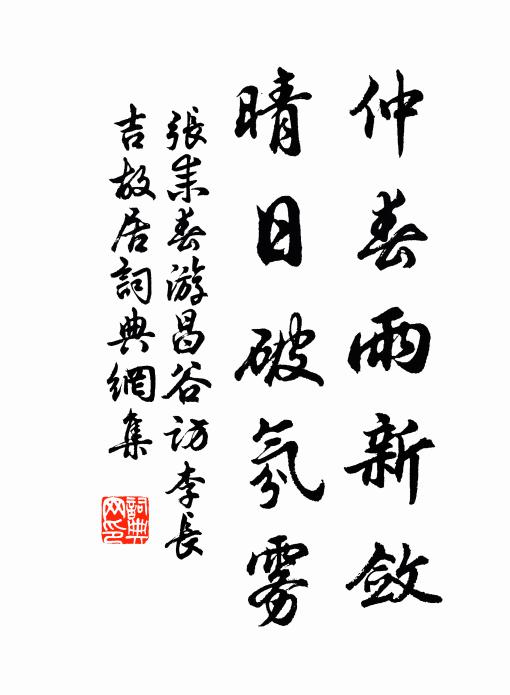 仲春雨新斂
晴日破氛雾
張耒春游昌谷訪李長
吉故居詞典網集
詞典
网印